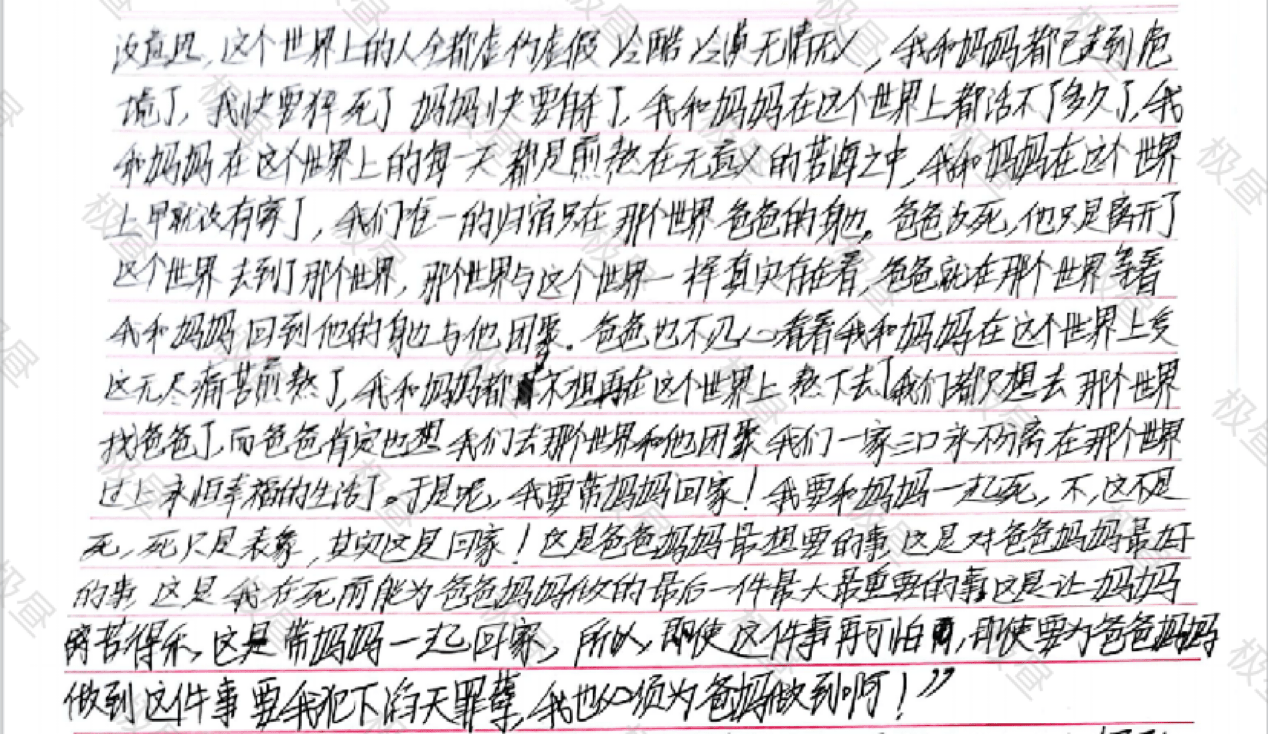 没意思,这个世界上的人全都虚伪虚假 冷酷 冷漠无情无义,我和妈妈都已走到危
境了,我快要猝死了 妈妈快要自杀了,我和妈妈在这个世界上都活不了多久了,我
和妈妈在这个世界上的每一天都是煎熬在无意义的苦海之中,我和妈妈在这个世界
上早就没有家了,我们唯一的归宿只在那个世界爸爸的身边。爸爸没死,他只是离开了
这个世界去到了那个世界,那个世界与这个世界一样真实存在着,爸爸就在那个世界等着
我和妈妈回到他的身边与他团聚。爸爸也不忍心看着我和妈妈在这个世界上受
这无尽痛苦煎熬了,我和妈妈都不想再在这个世界上熬下去了我们都只想去那个世界
找爸爸了,而爸爸肯定也想我们去那个世界和他团聚我们一家三口永不分离在那个世界
过上永恒幸福的生活了。于是呢,我要带妈妈回家!我要和妈妈一起死,不,这不是
死,死只是表象,其实这是回家!这是爸爸妈妈最想要的事 这是对爸爸妈妈最好
的事 这是我在死前能为爸爸妈妈做的最后一件最大最重要的事这是让妈妈
离苦得乐,这是带妈妈一起回家,所以,即使这件事再可怕,即使要为爸爸妈妈
做到这件事要我犯下滔天罪孽,我也必须为爸妈做到啊!”
极昼